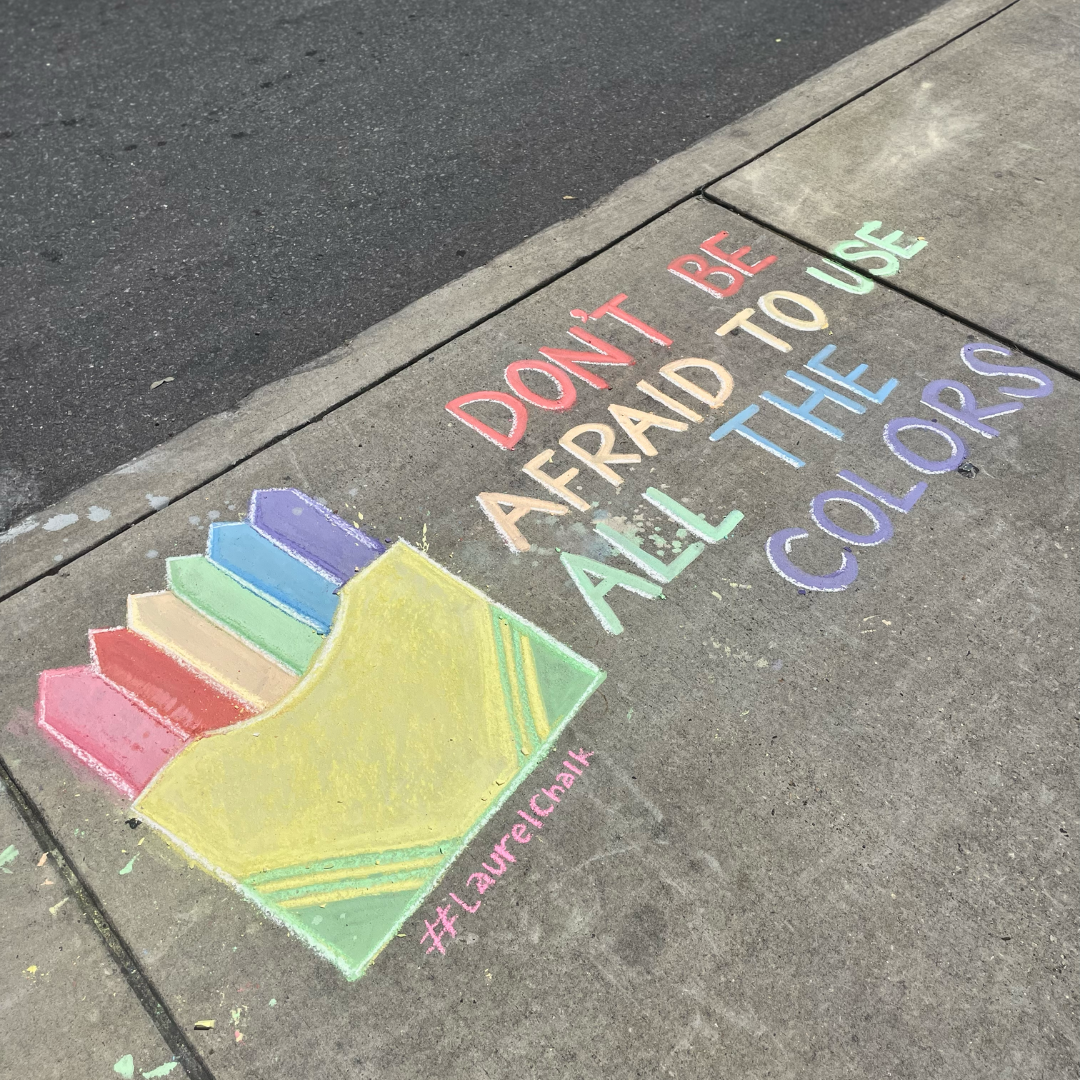 DON'T BE
AFRAID TO USE
ALL THE
COLORS
#LaurelChalk